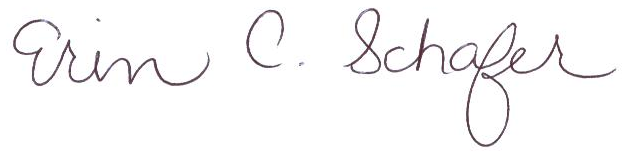 Erin C. Schafer